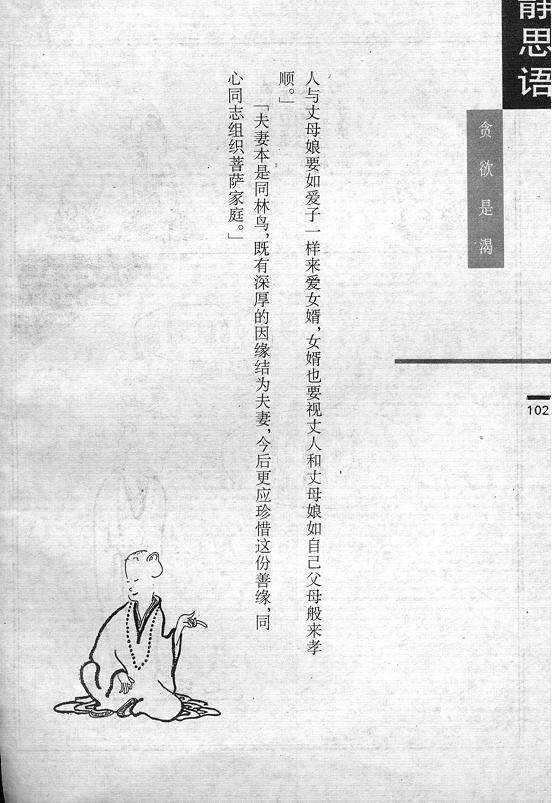 静思语
贪欲是渴
102
人与丈母娘要如爱子一样来爱女婿，女婿也要视丈人和丈母娘如自己父母般来孝
顺。」
「夫妻本是同林鸟，既有深厚的因缘结为夫妻，今后更应珍惜这份善缘，同
心同志组织菩萨家庭。」